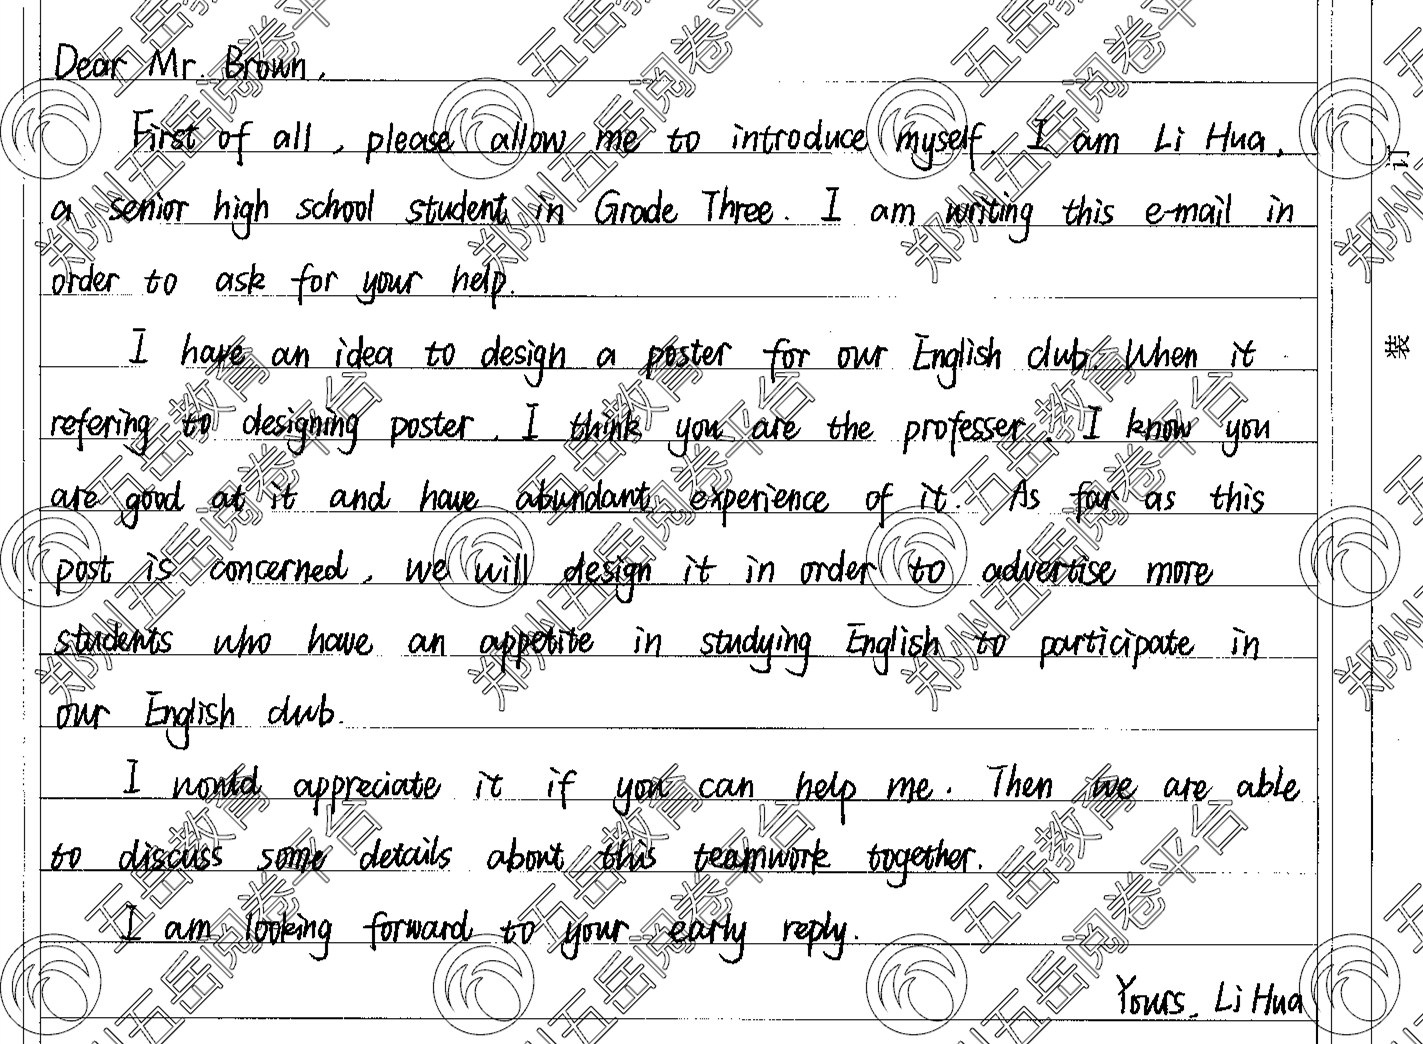 Dear Mr. Brown,
First of all, please allow me to introduce myself. I am Li Hua,
a senior high school student in Grade Three. I am writing this e-mail in
order to ask for your help.
I have an idea to design a poster for our English club. When it
refering to designing poster, I think you are the professer. I know you
are good at it and have abundant experience of it. As far as this
post is concerned, we will design it in order to advertise more
students who have an appetite in studying English to participate in
our English club.
I would appreciate it if you can help me. Then we are able
to discuss some details about this teamwork together.
I am looking forward to your early reply.
Yours, Li Hua
订
装
郑州五岳教育
五岳阅卷平台